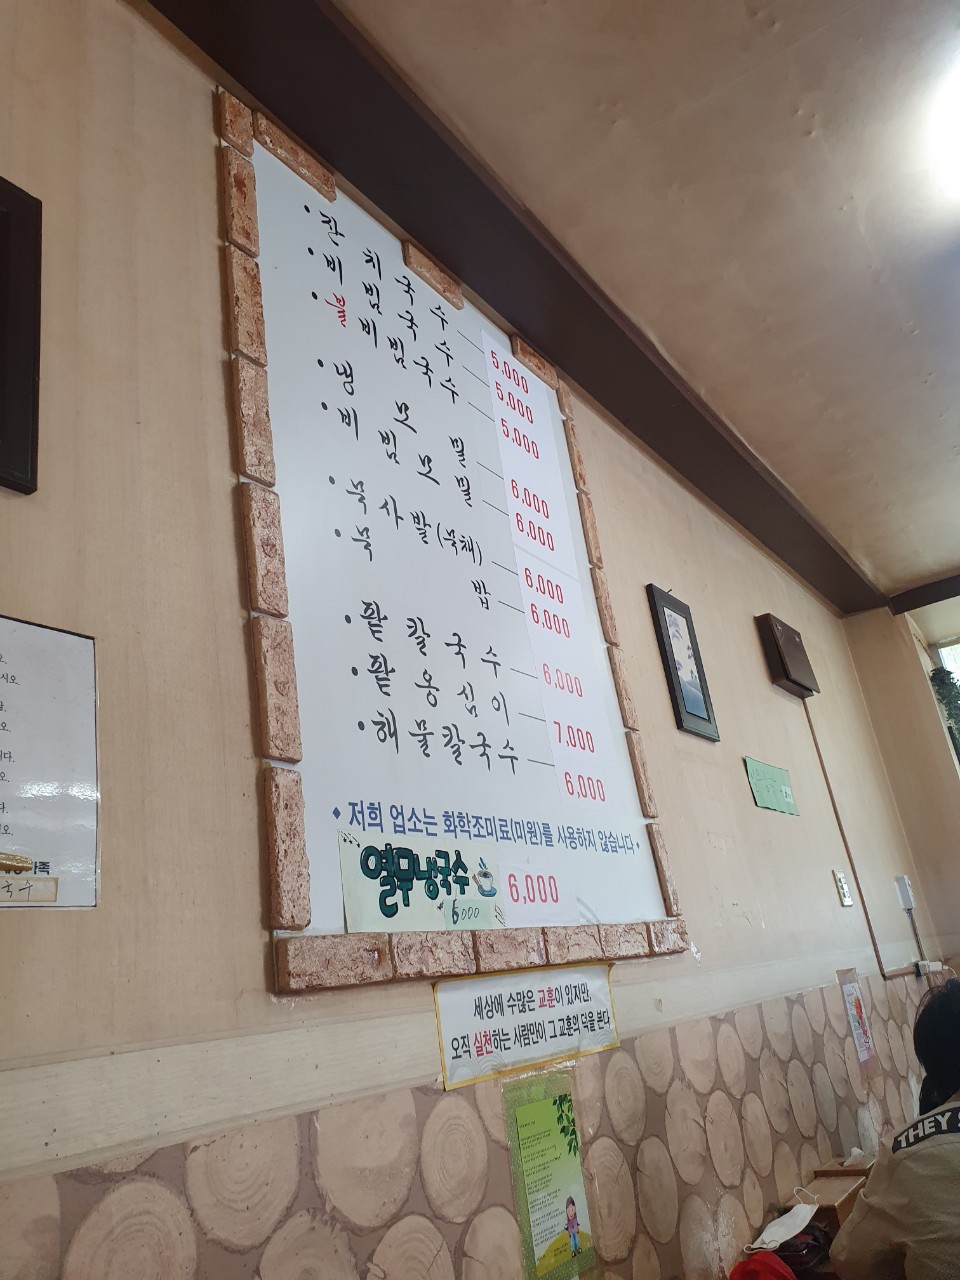 · 잔치국수 — 5,000
· 비빔국수 — 5,000
· 불비빔국수 — 5,000
· 냉모밀 — 6,000
· 비빔모밀 — 6,000
· 묵사발(묵채) — 6,000
· 묵밥 — 6,000
· 팥칼국수 — 6,000
· 팥옹심이 — 7,000
· 해물칼국수 — 6,000
◆ 저희 업소는 화학조미료(미원)를 사용하지 않습니다 ◆
열무냉국수 6,000
6000
세상에 수많은 교훈이 있지만,
오직 실천하는 사람만이 그 교훈의 덕을 본다
국수
THEY